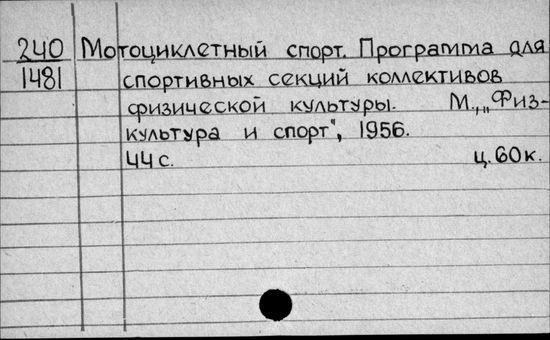 240 Мотоциклетный спорт. Программа для
1481 спортивных секций коллективов
физической культуры. М., „Физ-
культура и спорт", 1956.
44 с. ц. 60 к.